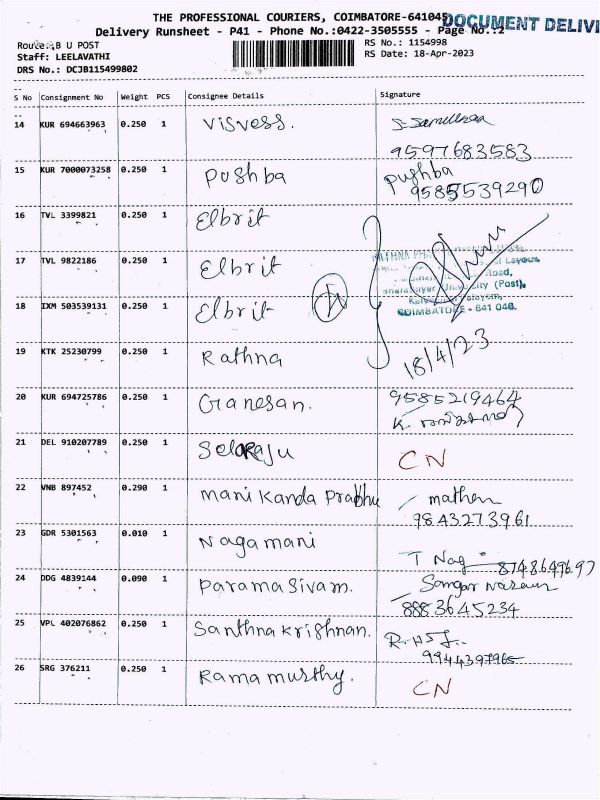 THE PROFESSIONAL COURIERS, COIMBATORE-641045
DOCUMENT DELIVE
Delivery Runsheet - P41 - Phone No.:0422-3505555 - Page No.:2
Route: B U POST
RS No.: 1154998
Staff: LEELAVATHI
RS Date: 18-Apr-2023
DRS No.: DCJB115499802
S No Consignment No Weight PCS Consignee Details Signature
14 KUR 694663963 0.250 1 Visvess.
9597683583
15 KUR 7000073258 0.250 1 Pushba pushba
9585539290
16 TVL 3399821 0.250 1 Elbrit
17 TVL 9822186 0.250 1 Elbrit
Layout,
Road,
University (Post),
18 IXM 503539131 0.250 1 Elbrit
COIMBATORE - 641 046.
19 KTK 25230799 0.250 1 Rathna 18/4/23
20 KUR 694725786 0.250 1 Ganesan. 9585219464
K.
21 DEL 910207789 0.250 1 Selvaraju CN
22 VNB 897452 0.290 1 Mani Kanda Prabhu mathen
9843273961
23 GDR 5301563 0.010 1 Nagamani
T Nag
24 DDG 4839144 0.090 1 Parama Sivam.
8883645234
25 VPL 402076862 0.250 1 Santhna Krishnan.
9944397965
26 SRG 376211 0.250 1 Rama Murthy. CN